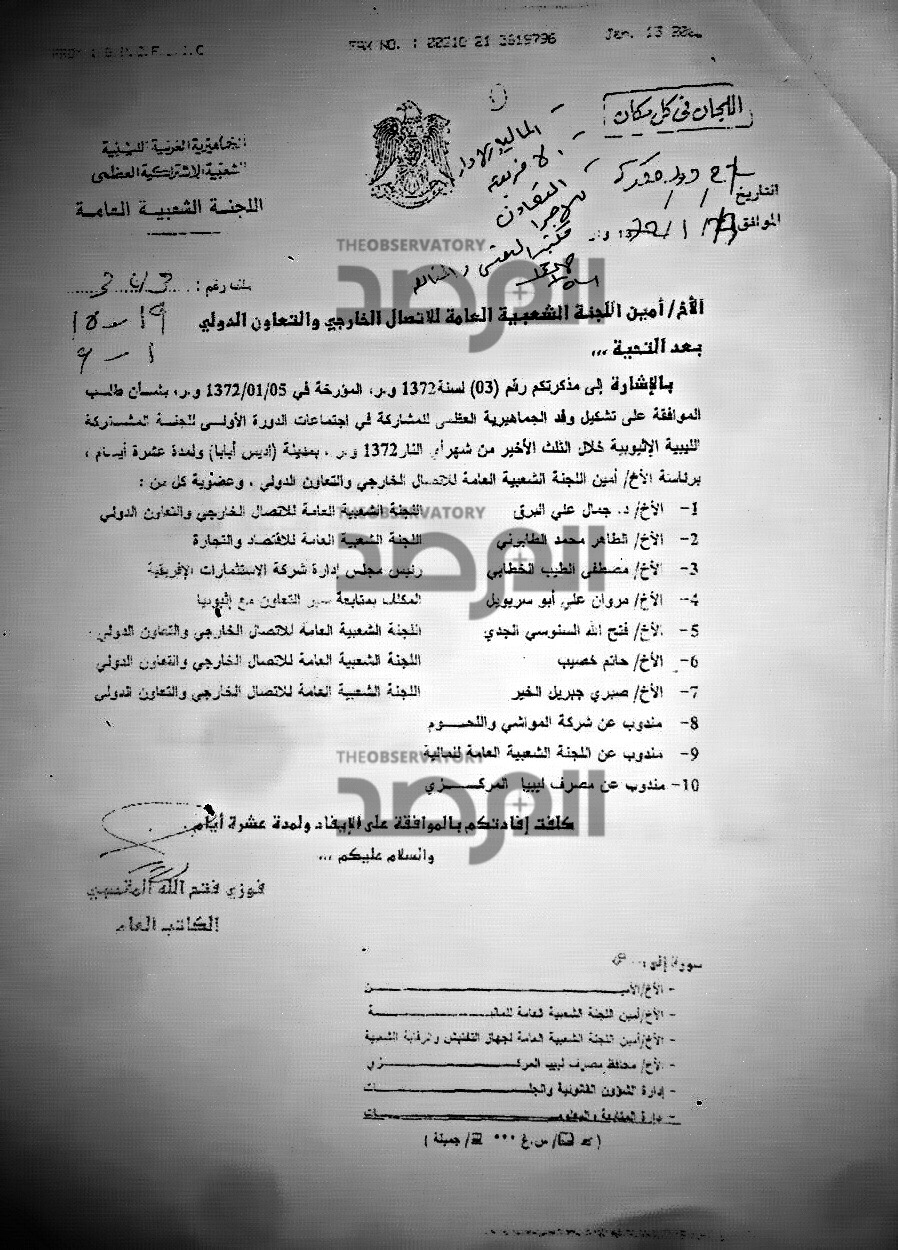 FAX NO. : 00218 21 3619796
Jan. 13
اللجان في كل مكان
الجماهيرية العربية الليبية
الشعبية الاشتراكية العظمى
اللجنة الشعبية العامة
التاريخ
الموافق
ملف رقم :
THEOBSERVATORY
المرصد
الأخ/ أمين اللجنة الشعبية العامة للاتصال الخارجي والتعاون الدولي
بعد التحية ...
بالإشارة إلى مذكرتكم رقم (03) لسنة 1372 و.ر، المؤرخة في 1372/01/05 و.ر، بشأن طلب
الموافقة على تشكيل وفد الجماهيرية العظمى للمشاركة في اجتماعات الدورة الأولى للجنة المشتركة
الليبية الإثيوبية خلال الثلث الأخير من شهر أي النار 1372 و.ر ، بمدينة (اديس أبابا) ولمدة عشرة أيام ،
برئاسة الأخ/ أمين اللجنة الشعبية العامة للاتصال الخارجي والتعاون الدولي ، وعضوية كل من :
1- الأخ/ د. جمال علي البرق اللجنة الشعبية العامة للاتصال الخارجي والتعاون الدولي
THEOBSERVATORY
المرصد
2- الأخ/ الطاهر محمد اللجنة الشعبية العامة للاقتصاد والتجارة
3- الأخ/ مصطفى الطيب الخطابي رئيس مجلس إدارة شركة الاستثمارات الإفريقية
4- الأخ/ مروان علي أبو سريويل المكلف بمتابعة سير التعاون مع إثيوبيا
5- الأخ/ فتح الله السنوسي الجدي اللجنة الشعبية العامة للاتصال الخارجي والتعاون الدولي
6- الأخ/ حاتم خصيب اللجنة الشعبية العامة للاتصال الخارجي والتعاون الدولي
7- الأخ/ صبري جبريل الخير اللجنة الشعبية العامة للاتصال الخارجي والتعاون الدولي
8- مندوب عن شركة المواشي واللحوم
9- مندوب عن اللجنة الشعبية العامة للمالية
THEOBSERVATORY
المرصد
10- مندوب عن مصرف ليبيا المركزي
كلفت إفادتكم بالموافقة على الإيفاد ولمدة عشرة أيام
والسلام عليكم ...
فوزي فتح الله
الكاتب العام
صورة إلى
- الأخ/ الأمين
- الأخ/ أمين اللجنة الشعبية العامة للمالية
- الأخ/ أمين اللجنة الشعبية العامة لجهاز التفتيش والرقابة الشعبية
- الأخ/ محافظ مصرف ليبيا المركزي
- إدارة الشؤون القانونية
- إدارة المتابعة والمعلومات
س.غ *** / جميلة )